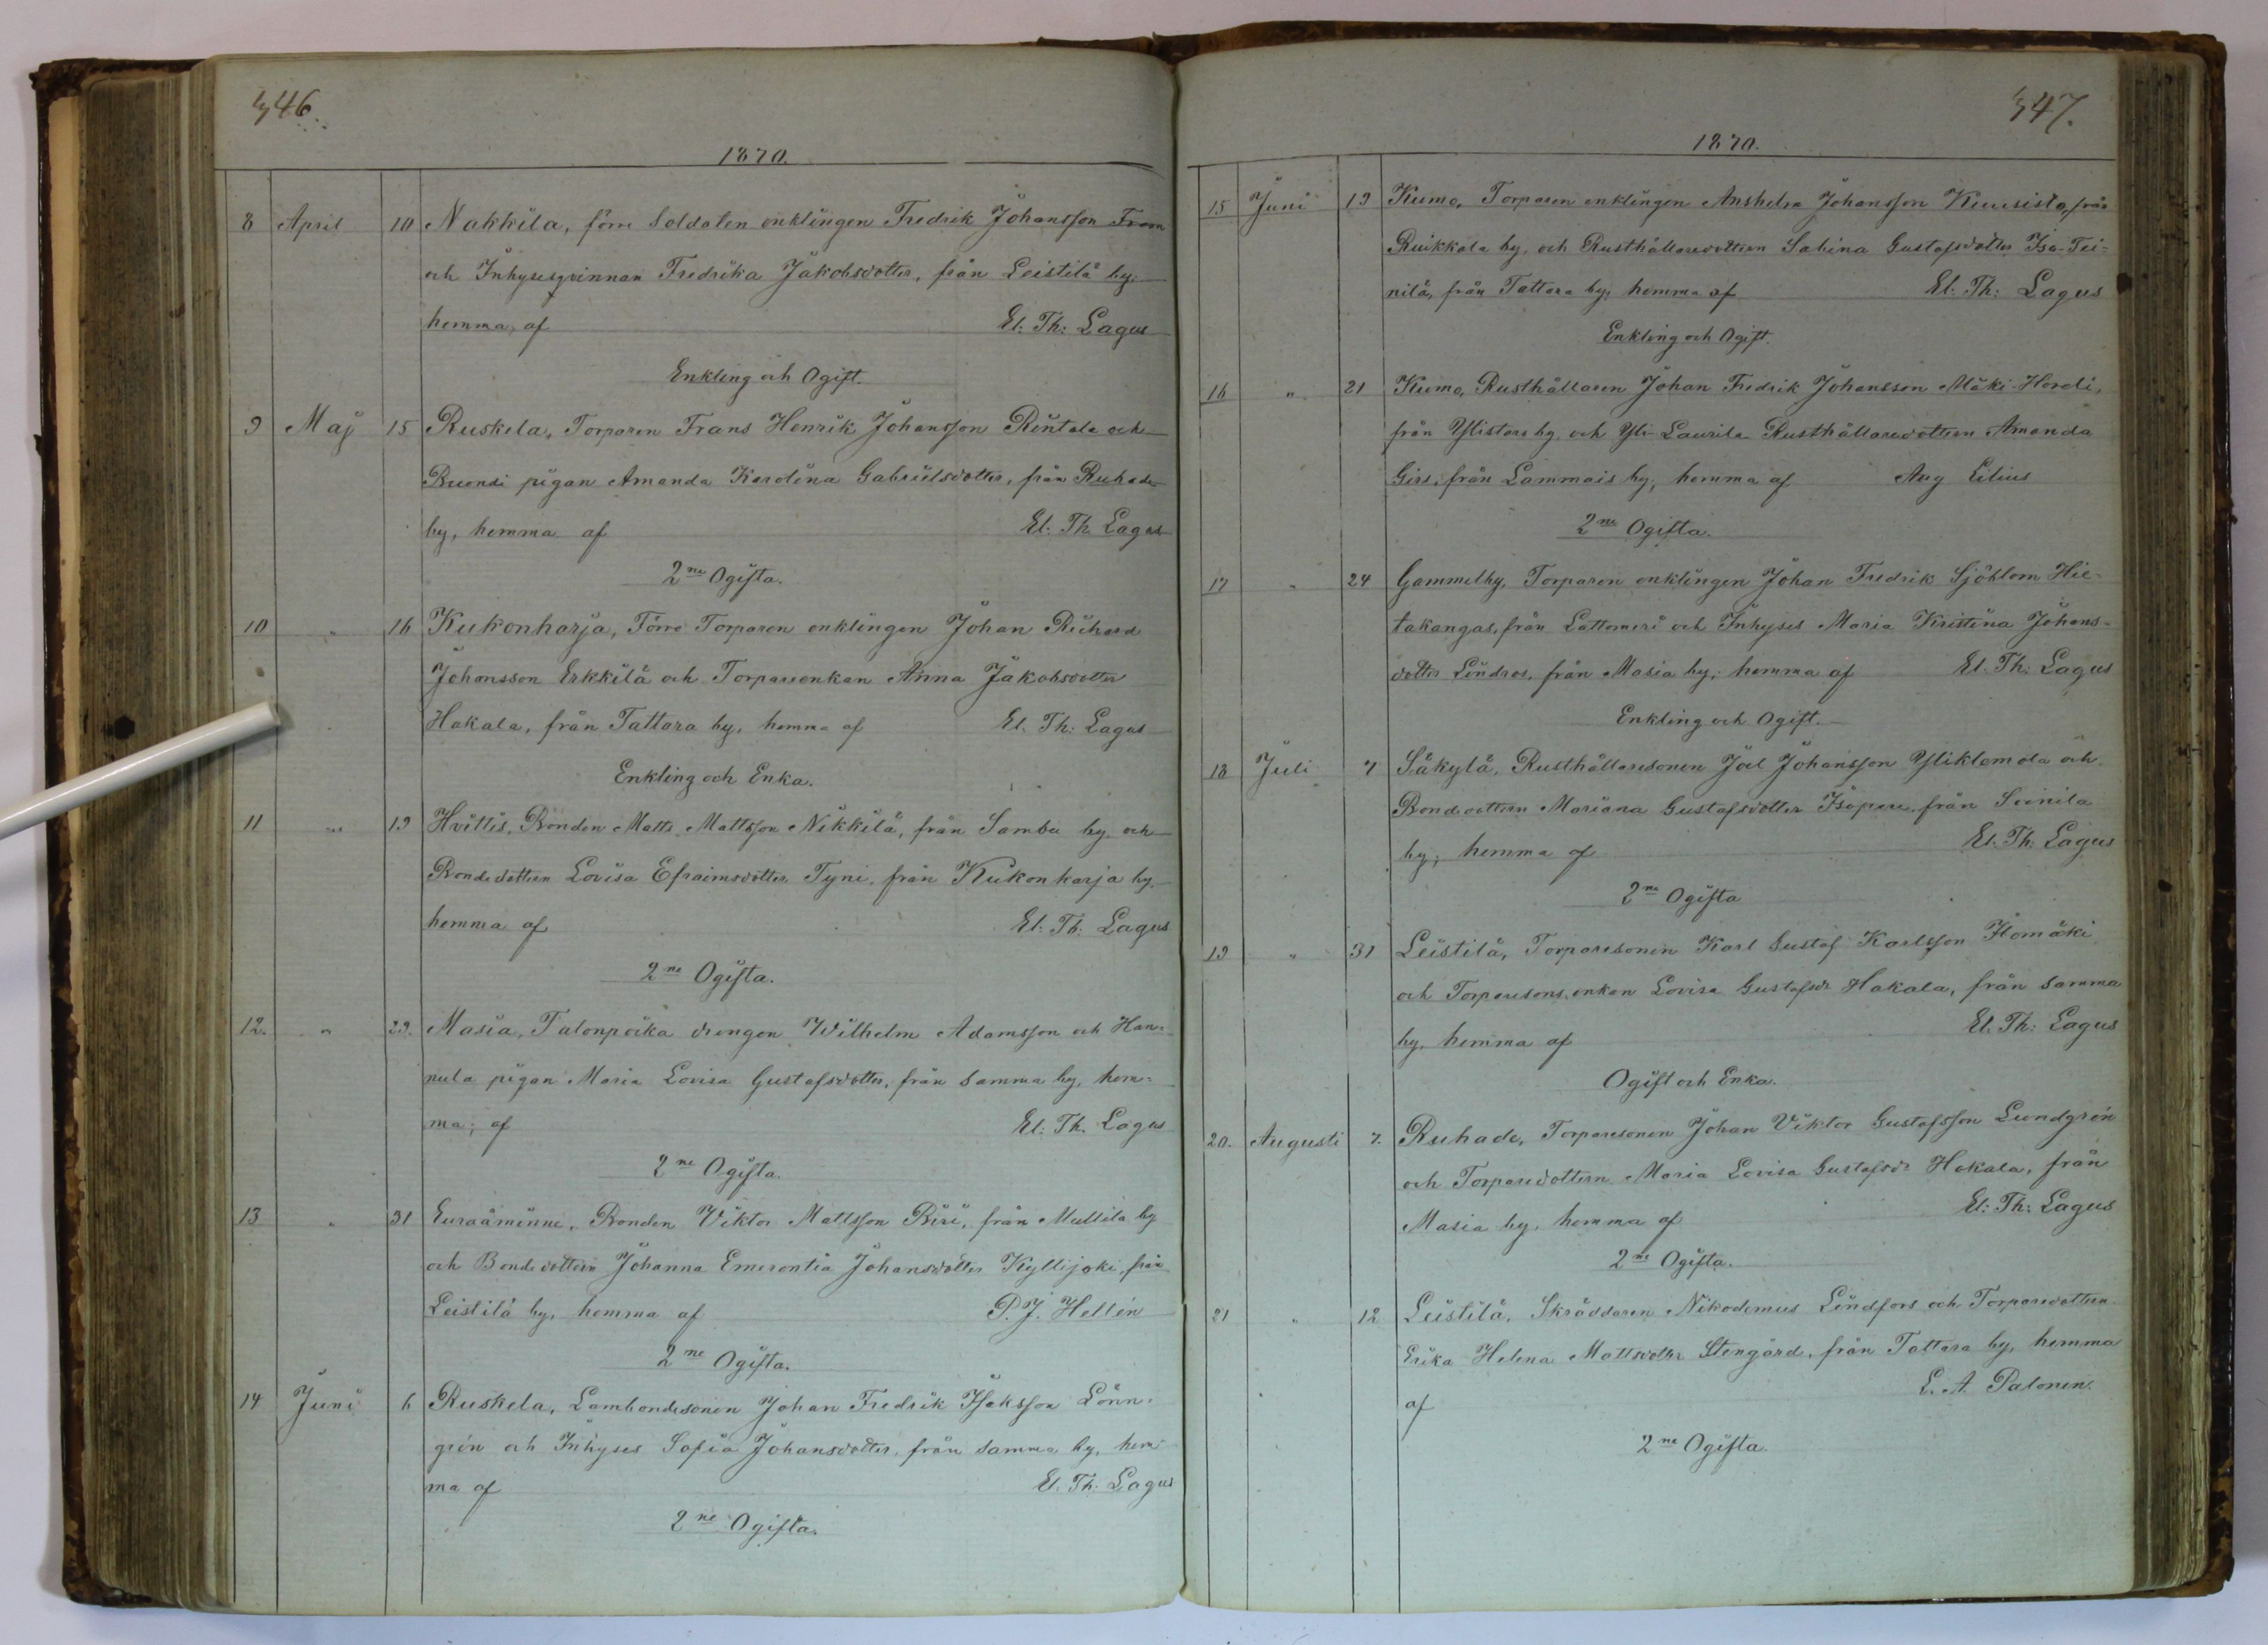 446.
1870.
8 April 10 Nakkila, förre Soldaten enklingen Fredrik Johansson From
och Inhysesqvinnan Fredrika Jakobsdotter, från Leistilä by;
hemma, af El: Th: Lagus
Enkling och Ogift.
9 Maj 15 Ruskela, Torparen Frans Henrik Johansson Rintala och
Buondi pigan Amanda Karolina Gabrielsdotter, från Ruhade
by, hemma af El: Th Lagus
2ne Ogifta.
10 " 16 Kukonharja, Förre Torparen enklingen Johan Richard
Johansson Erkkilä och Torpareenkan Anna Jakobsdotter
Hakala, från Tattara by, hemma af El. Th: Lagus
Enkling och Enka.
11 " 19 Hvittis, Bonden Matts Mattsson Nikkilä, från Sambu by och
Bondedottren Lovisa Efraimsdotter Tyni, från Kukonharja by,
hemma af El: Th: Lagus
2ne Ogifta.
12. " 29. Masia, Talonpoika drengen Wilhelm Adamsson och Han=
nula pigan Maria Lovisa Gustafsdotter, från samma by, hem=
ma; af El: Th. Lagus
2ne Ogifta.
13 " 31 Euraåminne, Bonden Viktor Mattsson Biri, från Mullila by
och Bondedottern Johanna Emerentia Johansdotter Kyllijoki, från
Leistilä by, hemma af P. J. Hellén
2ne Ogifta.
14 Juni 6 Ruskela, Lambondesonen Johan Fredrik Isaksson Lönn=
grén och Inhyses Sofia Johansdotter, från samma by, hem=
ma af El. Th: Lagus
2ne Ogifta.
447.
1870.
15 Juni 19 Kumo, Torparen enklingen Anshelm Johansson Kuusisto, från
Ruikkala by, och Rusthållaredottren Sabina Gustafsdotter Iso-Tei=
nilä, från Tattara by, hemma af El. Th: Lagus
Enkling och Ogift.
16 " 21 Kumo, Rusthållaren Johan Fredrik Johansson Mäki-Hordi,
från Ylistaro by, och Yli-Laurila Rusthållaredottren Amanda
Girs, från Lammais by, hemma af Aug Lilius
2ne Ogifta.
17 " 24 Gammelby, Torparen enklingen Johan Fredrik Sjöblom Hie=
takangas, från Lattomeri och Inhyses Maria Kristina Johans=
dotter Lindros, från Masia by, hemma af El. Th: Lagus
Enkling och Ogift.
18 Juli 7 Säkylä, Rusthållaresonen Joel Johansson Yliklemola och
Bondedottren Mariana Gustafsdotter Isopere, från Soinila
by; hemma af El. Th: Lagus
2ne Ogifta
19 " 31 Leistilä, Torparesonen Karl Gustaf Karlsson Ilomäki
och Torparesons enkan Lovisa Gustafsdr Hakala, från samma
by, hemma af El. Th: Lagus
Ogift och Enka.
20. Augusti 7. Ruhade, Torparesonen Johan Viktor Gustafsson Lundgrén
och Torparedottern Maria Lovisa Gustafsdr Hakala, från
Masia by, hemma af El: Th: Lagus
2ne Ogifta.
21 " 12 Leistilä, Skräddaren Nikodemus Lindfors och Torparedottren
Erika Helena Mattsdotter Stengård, från Tattara by, hemma
af E. A. Palonen.
2ne Ogifta.